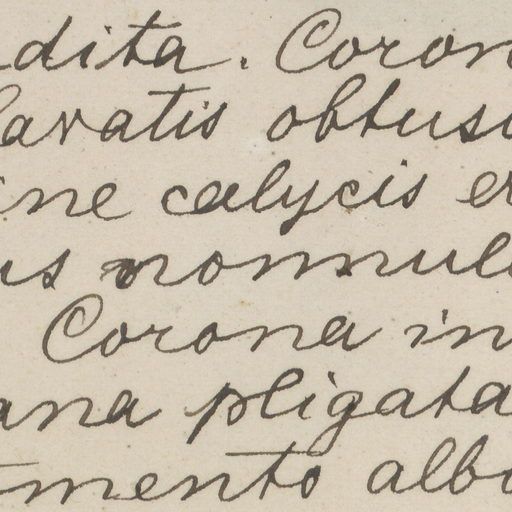 dita. Coron
lavatis obtuso
ine calycis er
us nonnull
Corona in
ana pligata
mento albo